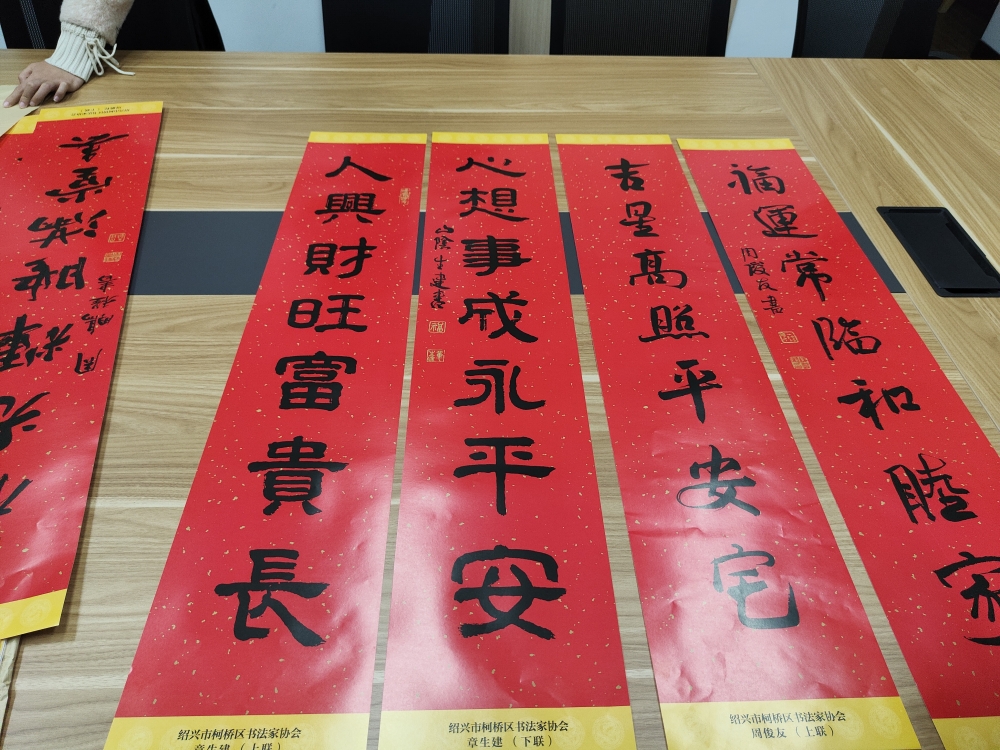 人興財旺富貴長
心想事成永平安
山陰生建書
吉星高照平安宅
福運常臨和睦家
書
光輝
滿堂
绍兴市柯桥区书法家协会
章生建（上联）
绍兴市柯桥区书法家协会
章生建（下联）
绍兴市柯桥区书法家协会
周俊友（上联）